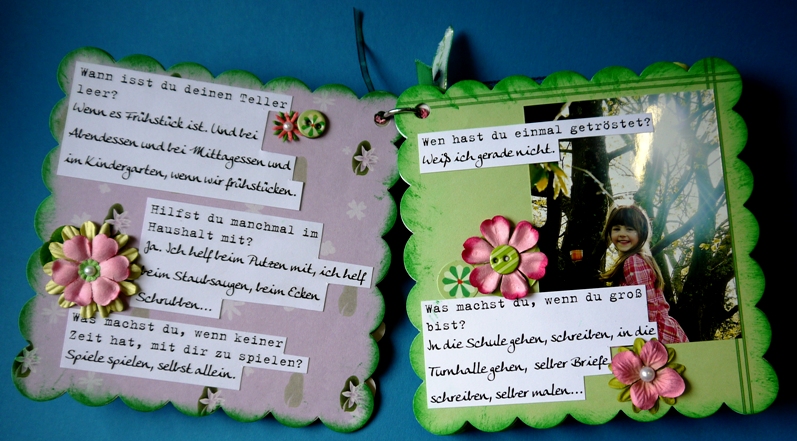 Wann isst du deinen Teller
leer?
Wenn es Frühstück ist. Und bei
Abendessen und bei Mittagessen und
im Kindergarten, wenn wir frühstücken.
Hilfst du manchmal im
Haushalt mit?
Ja. Ich helf beim Putzen mit, ich helf
beim Staubsaugen, beim Ecken
Schrubben...
Was machst du, wenn keiner
Zeit hat, mit dir zu spielen?
Spiele spielen, selbst allein.
Wen hast du einmal getröstet?
Weiß ich gerade nicht.
Was machst du, wenn du groß
bist?
In die Schule gehen, schreiben, in die
Turnhalle gehen, selber Briefe
schreiben, selber malen...